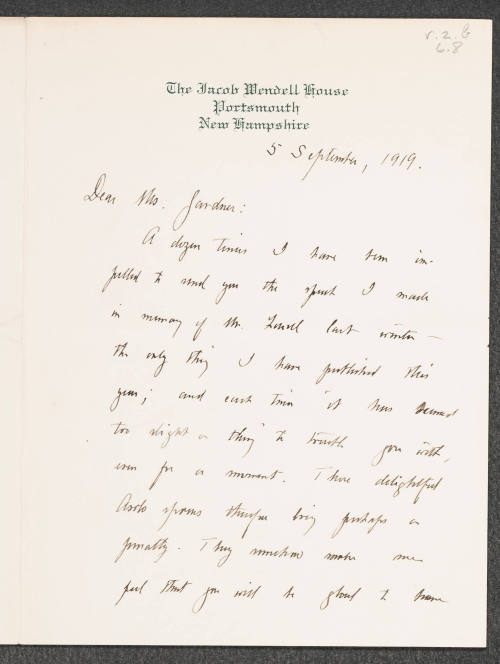 v. 2. B
6.8
The Jacob Wendell House
Portsmouth
New Hampshire
5 September, 1919.
Dear Mrs. Gardner:
A dozen times I have been im-
pelled to send you the speech I made
in memory of Mr. Lowell last winter —
the only thing I have published this
year; and each time it has seemed
too slight a thing to trouble you with,
even for a moment. These delightful
spoons therefore bring perhaps a
penalty. They somehow make me
feel that you will be glad to have